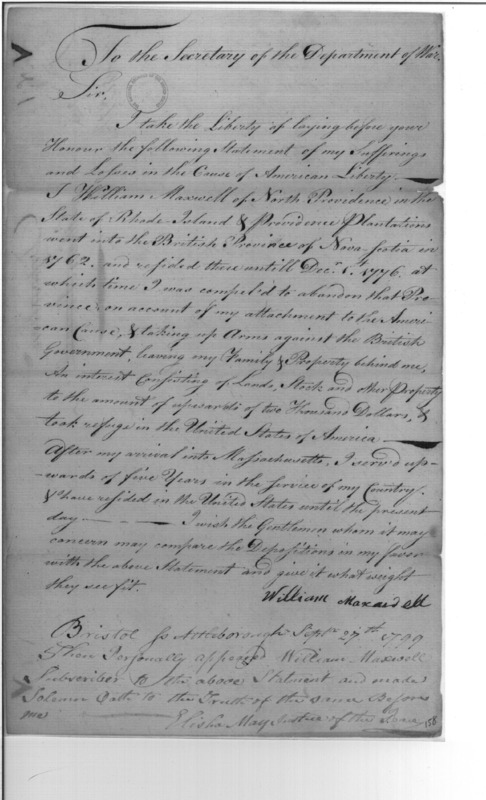 To the Secretary of the Department of War.
Sir,
I take the Liberty of laying before your
Honour the following Statement of my Sufferings
and Losses in the Cause of American Liberty.
I William Maxwell of North Providence in the
State of Rhode Island & Providence Plantations
went into the British Province of Nova-scotia in
1762. and resided there untill Decr. 1st. 1776, at
which time I was compel'd to abandon that Pro-
vince on account of my attachment to the Ameri-
can Cause, & taking up Arms against the British
Government, leaving my Family & Property behind me,
An interest Consisting of Lands, Stock and other Property
to the amount of upwards of two Thousand Dollars, &
took refuge in the United States of America
After my arrival into Massachusetts, I serv'd up-
-wards of five Years in the Service of my Country.
& have resided in the United States until the present
day I wish the Gentlemen whom it may
concern may compare the Depositions in my favor
with the above Statement and give it what weight
they see fit.
William Maxwell
Bristol Ss Attleborough Septr. 27th. 1799
Then Personally appeared William Maxwell
Subscriber to the above Statment and made
Solemn Oath to the Truth of the same Before
me Elisha May Justice of the Peace
158